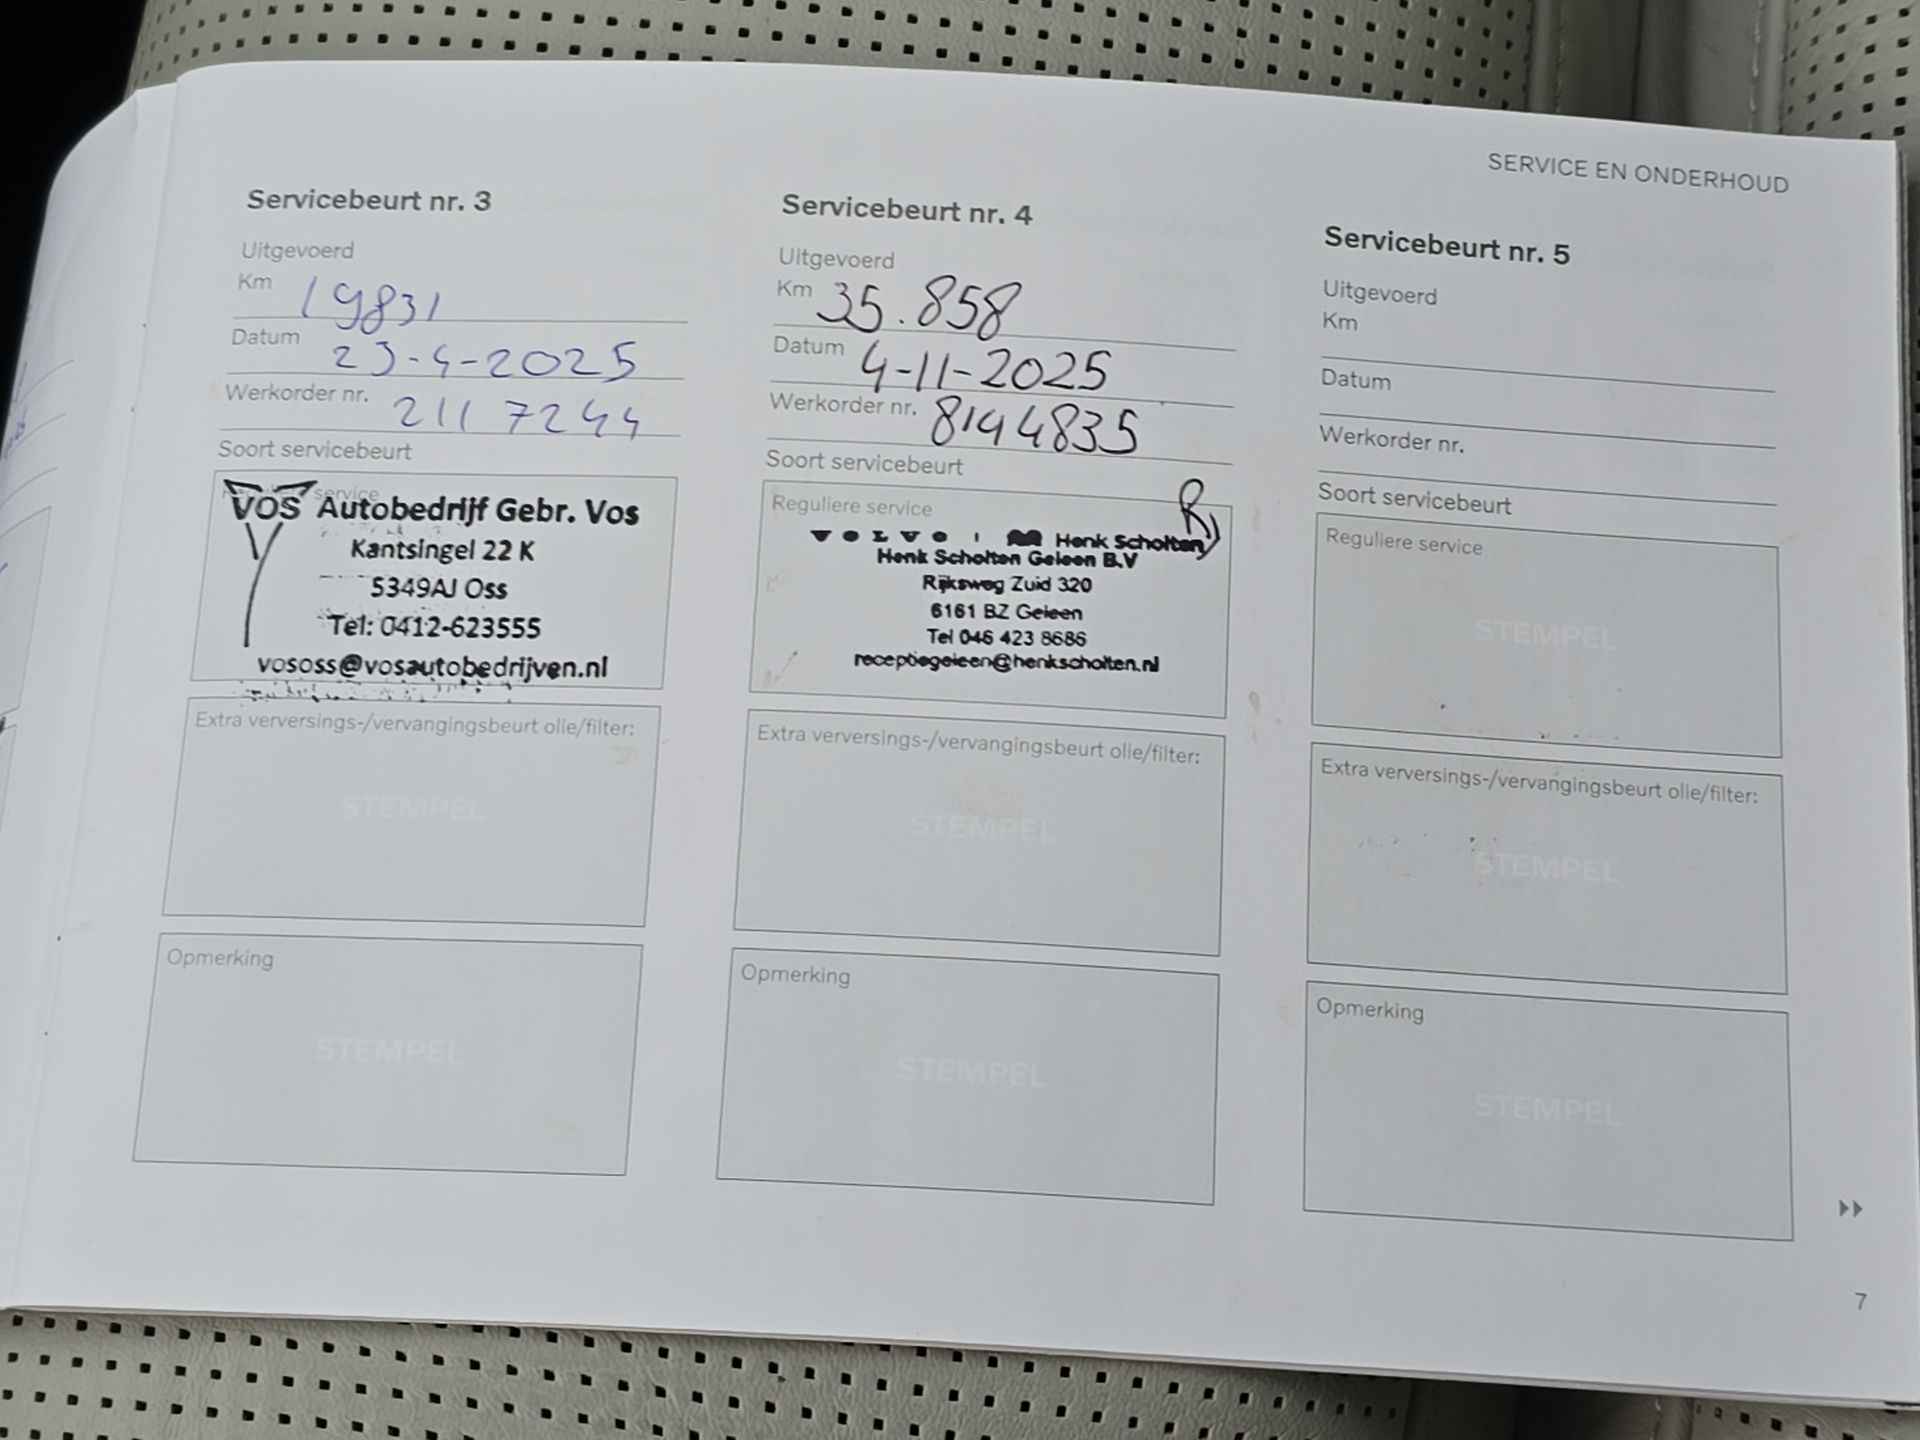 SERVICE EN ONDERHOUD
Servicebeurt nr. 3
Uitgevoerd
Km 19831
Datum 23-4-2025
Werkorder nr. 2117244
Soort servicebeurt
service
VOS Autobedrijf Gebr. Vos
Kantsingel 22 K
5349AJ Oss
Tel: 0412-623555
vososs@vosautobedrijven.nl
Extra verversings-/vervangingsbeurt olie/filter:
STEMPEL
Opmerking
STEMPEL
Servicebeurt nr. 4
Uitgevoerd
Km 35.858
Datum 4-11-2025
Werkorder nr. 8194835
Soort servicebeurt
Reguliere service
VOLVO Henk Scholten
Henk Scholten Geleen B.V
Rijksweg Zuid 320
6161 BZ Geleen
Tel 046 423 8686
receptiegeleen@henkscholten.nl
Extra verversings-/vervangingsbeurt olie/filter:
STEMPEL
Opmerking
STEMPEL
Servicebeurt nr. 5
Uitgevoerd
Km
Datum
Werkorder nr.
Soort servicebeurt
Reguliere service
STEMPEL
Extra verversings-/vervangingsbeurt olie/filter:
STEMPEL
Opmerking
STEMPEL
7